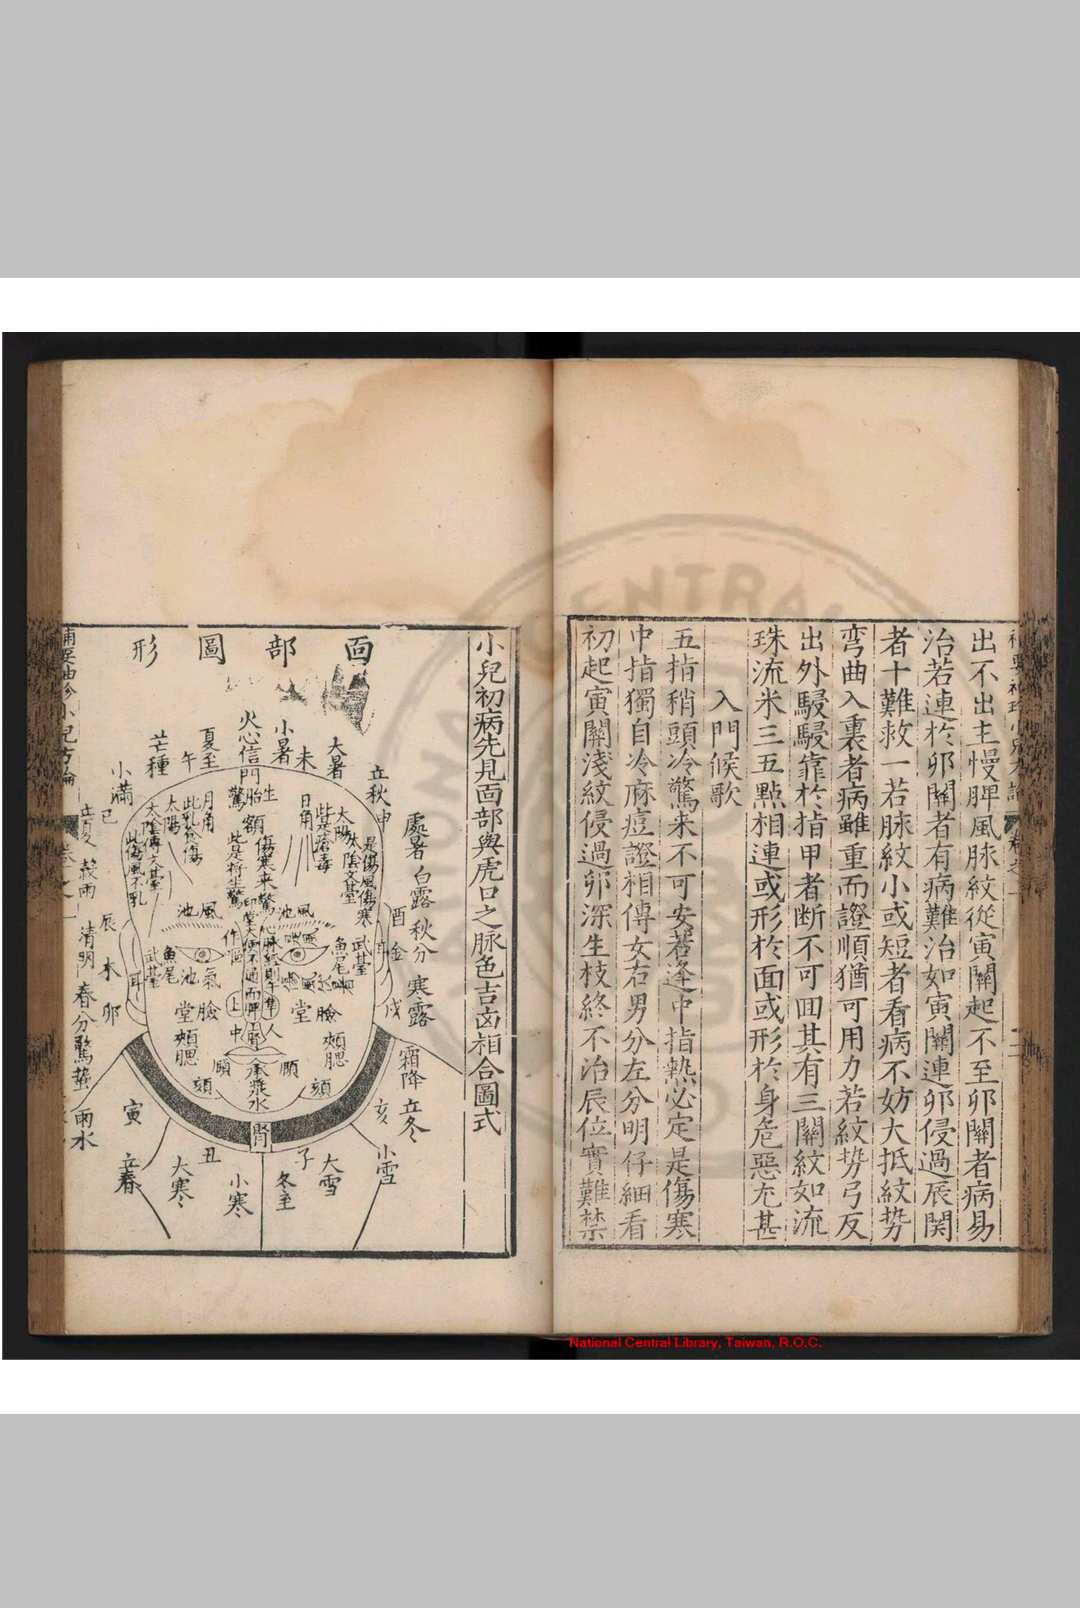 出不出主慢脾風脉紋從寅關起不至卯關者病易
治若連於卯關者有病難治如寅關連卯侵過辰関
者十難救一若脉紋小或短者看病不妨大抵紋势
弯曲入裏者病雖重而證順猶可用力若紋势弓反
出外駸駸靠於指甲者断不可囬其有三關紋如流
珠流米三五點相連或形於面或形於身危惡尤甚
入門候歌
五指稍頭冷驚来不可安若逢中指熱必定是傷寒
中指獨自冷麻痘證相傳女右男分左分明仔細看
初起寅關淺紋侵過卯深生枝終不治辰位實難禁
小兒初病先見面部與虎口之脉色吉凶相合圖式
面部圖形
處暑
白露
秋分
寒露
霜降
立冬
立秋
申
大暑
未
小暑
火心信門
夏至
午
芒種
小滿
巳
立夏
穀雨
辰
清明
木
卯
春分
驚蟄
雨水
寅
立春
大寒
丑
小寒
冬至
子
大雪
小雪
亥
戌
金
酉
胎生驚
額
日角
月角
太陽
太陽
此是瘡毒
是傷風傷寒
傷寒来驚
此乳食傷
此傷風不乳
風池
風池
武臺
武臺
魚尾
魚尾
氣池
耳
耳
印堂
臉堂
臉堂
頰腮
頰腮
人中
頤
頤
頦
頦
承漿水
腎
National Central Library, Taiwan, R.O.C.